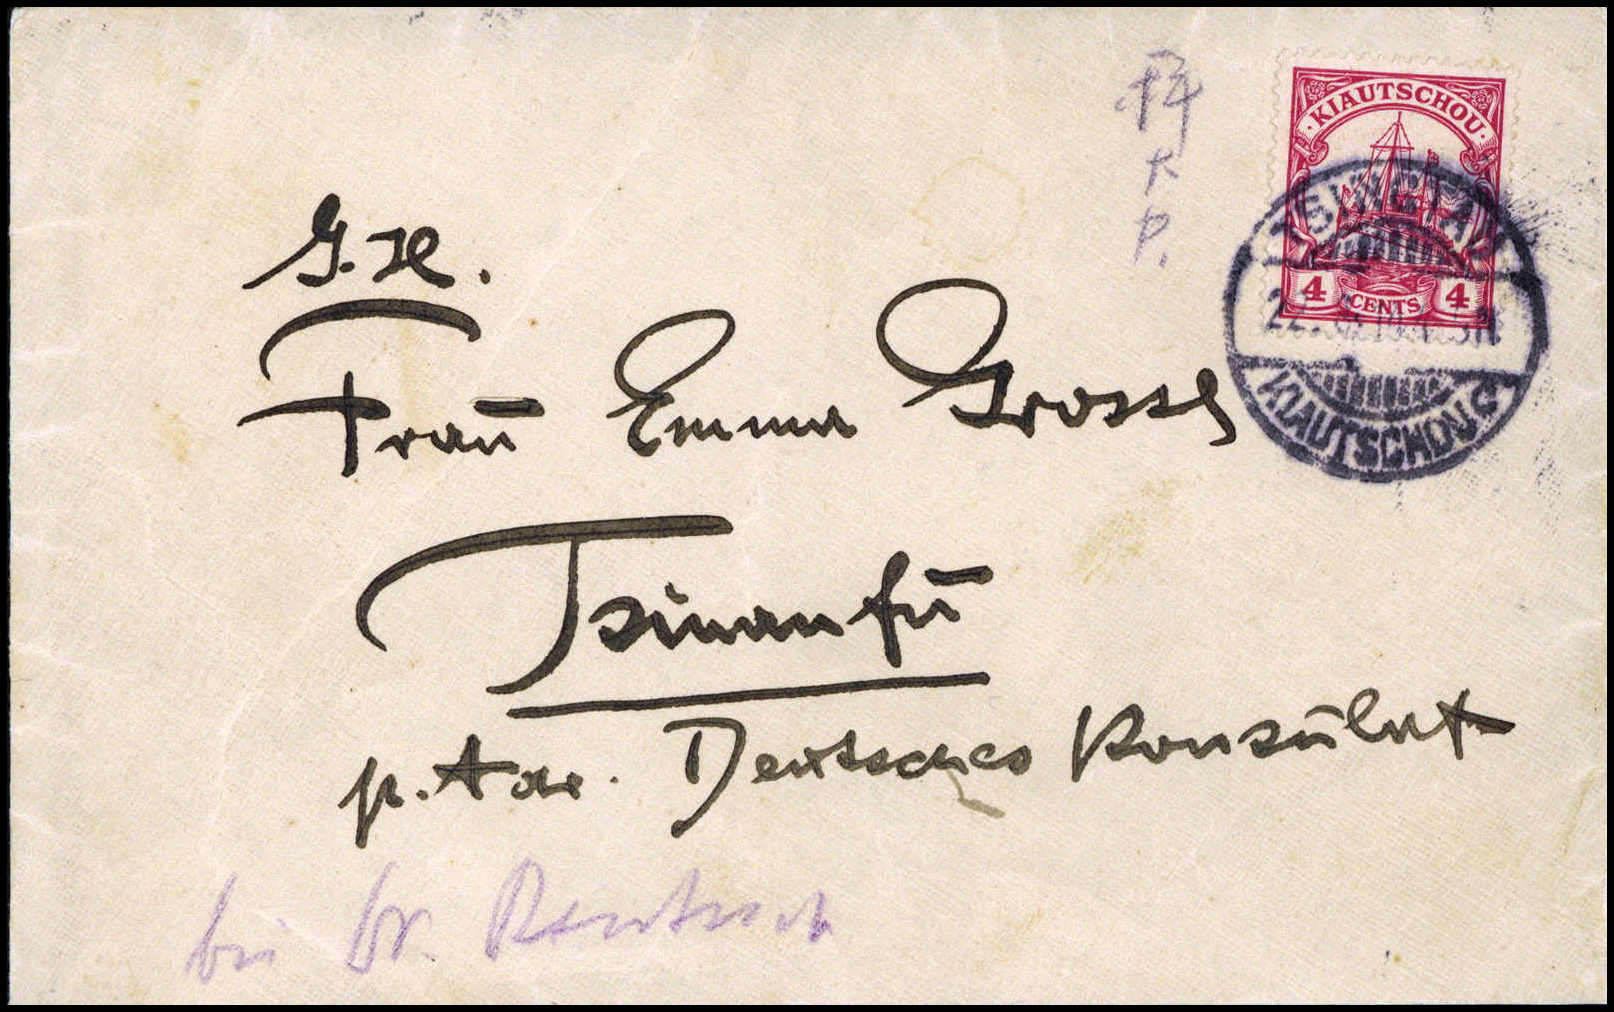 KIAUTSCHOU
4 CENTS 4
TSINGTAU
KIAUTSCHOU
Frau Emma Grosse
Tsinanfu
p. Adr. Deutsches Konsulat
bei Dr.